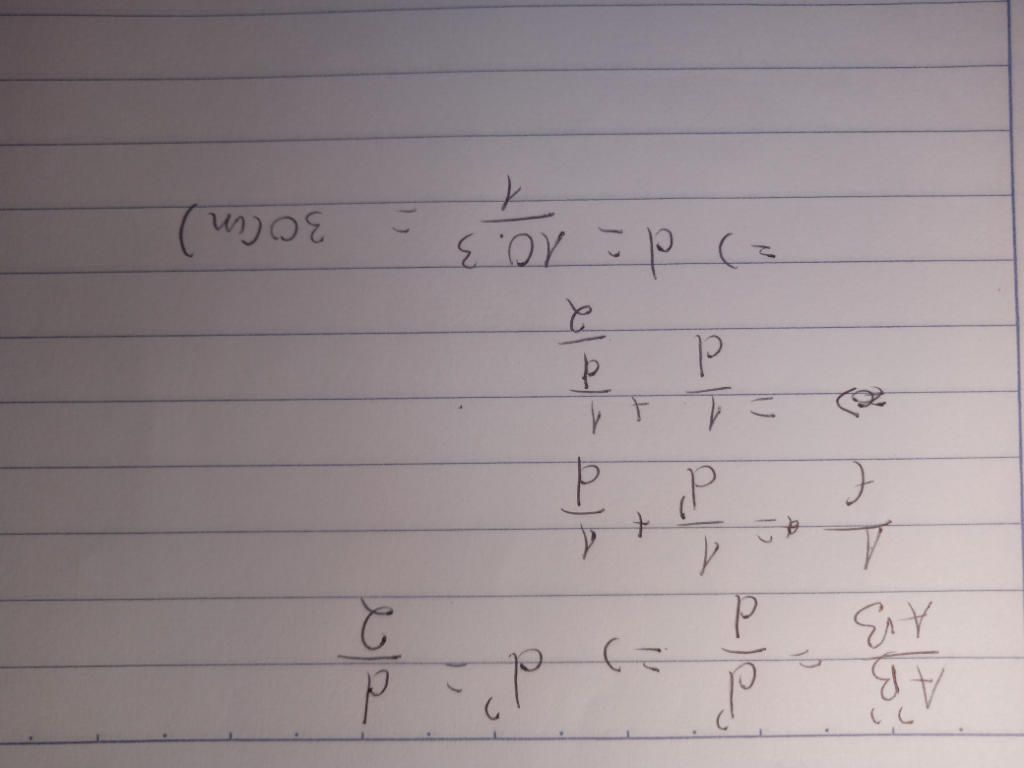 A'B'/AB = d'/d => d' = d/2
1/f = 1/d' + 1/d
= 1/d + 1/(d/2)
=> d = 10.3/1 = 30(cm)